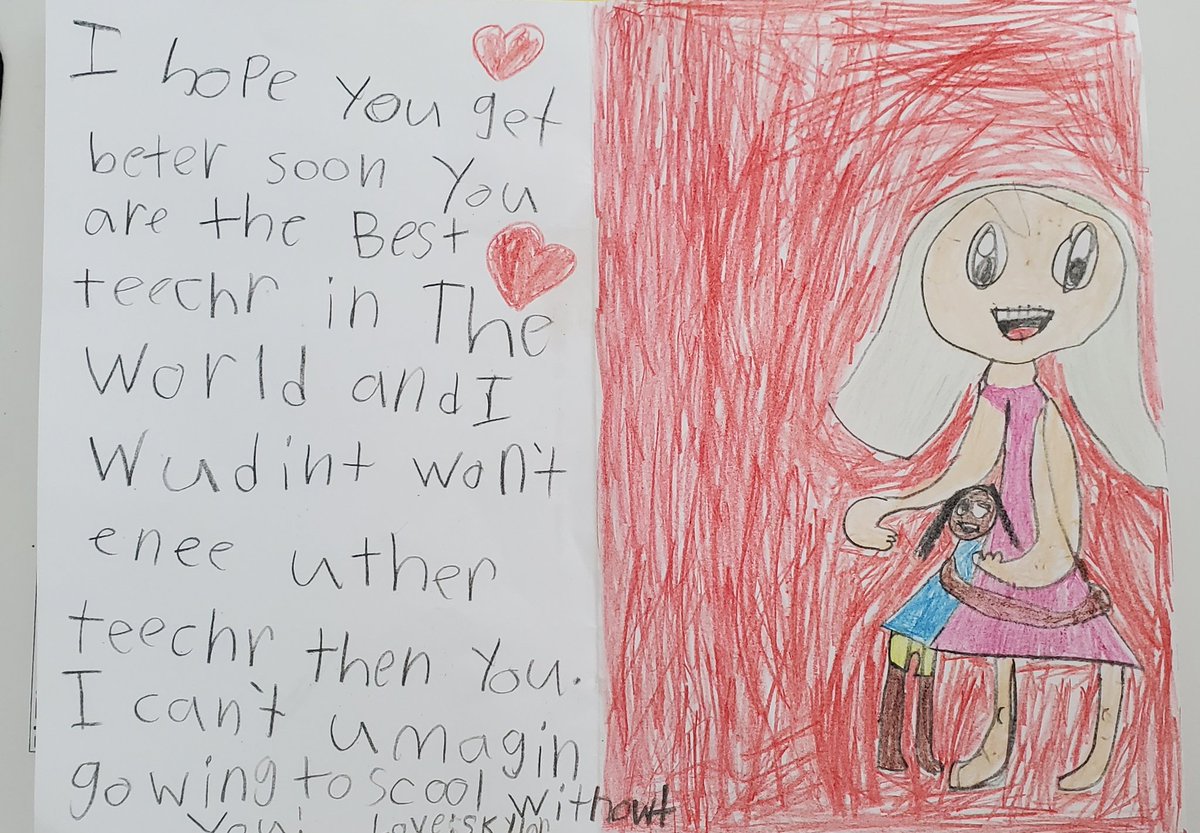 I hope You get
beter soon You
are the Best
teechr in The
World and I
Wudint won't
enee uther
teechr then You.
I can't umagin
gowing to scool withowt
You! Love: